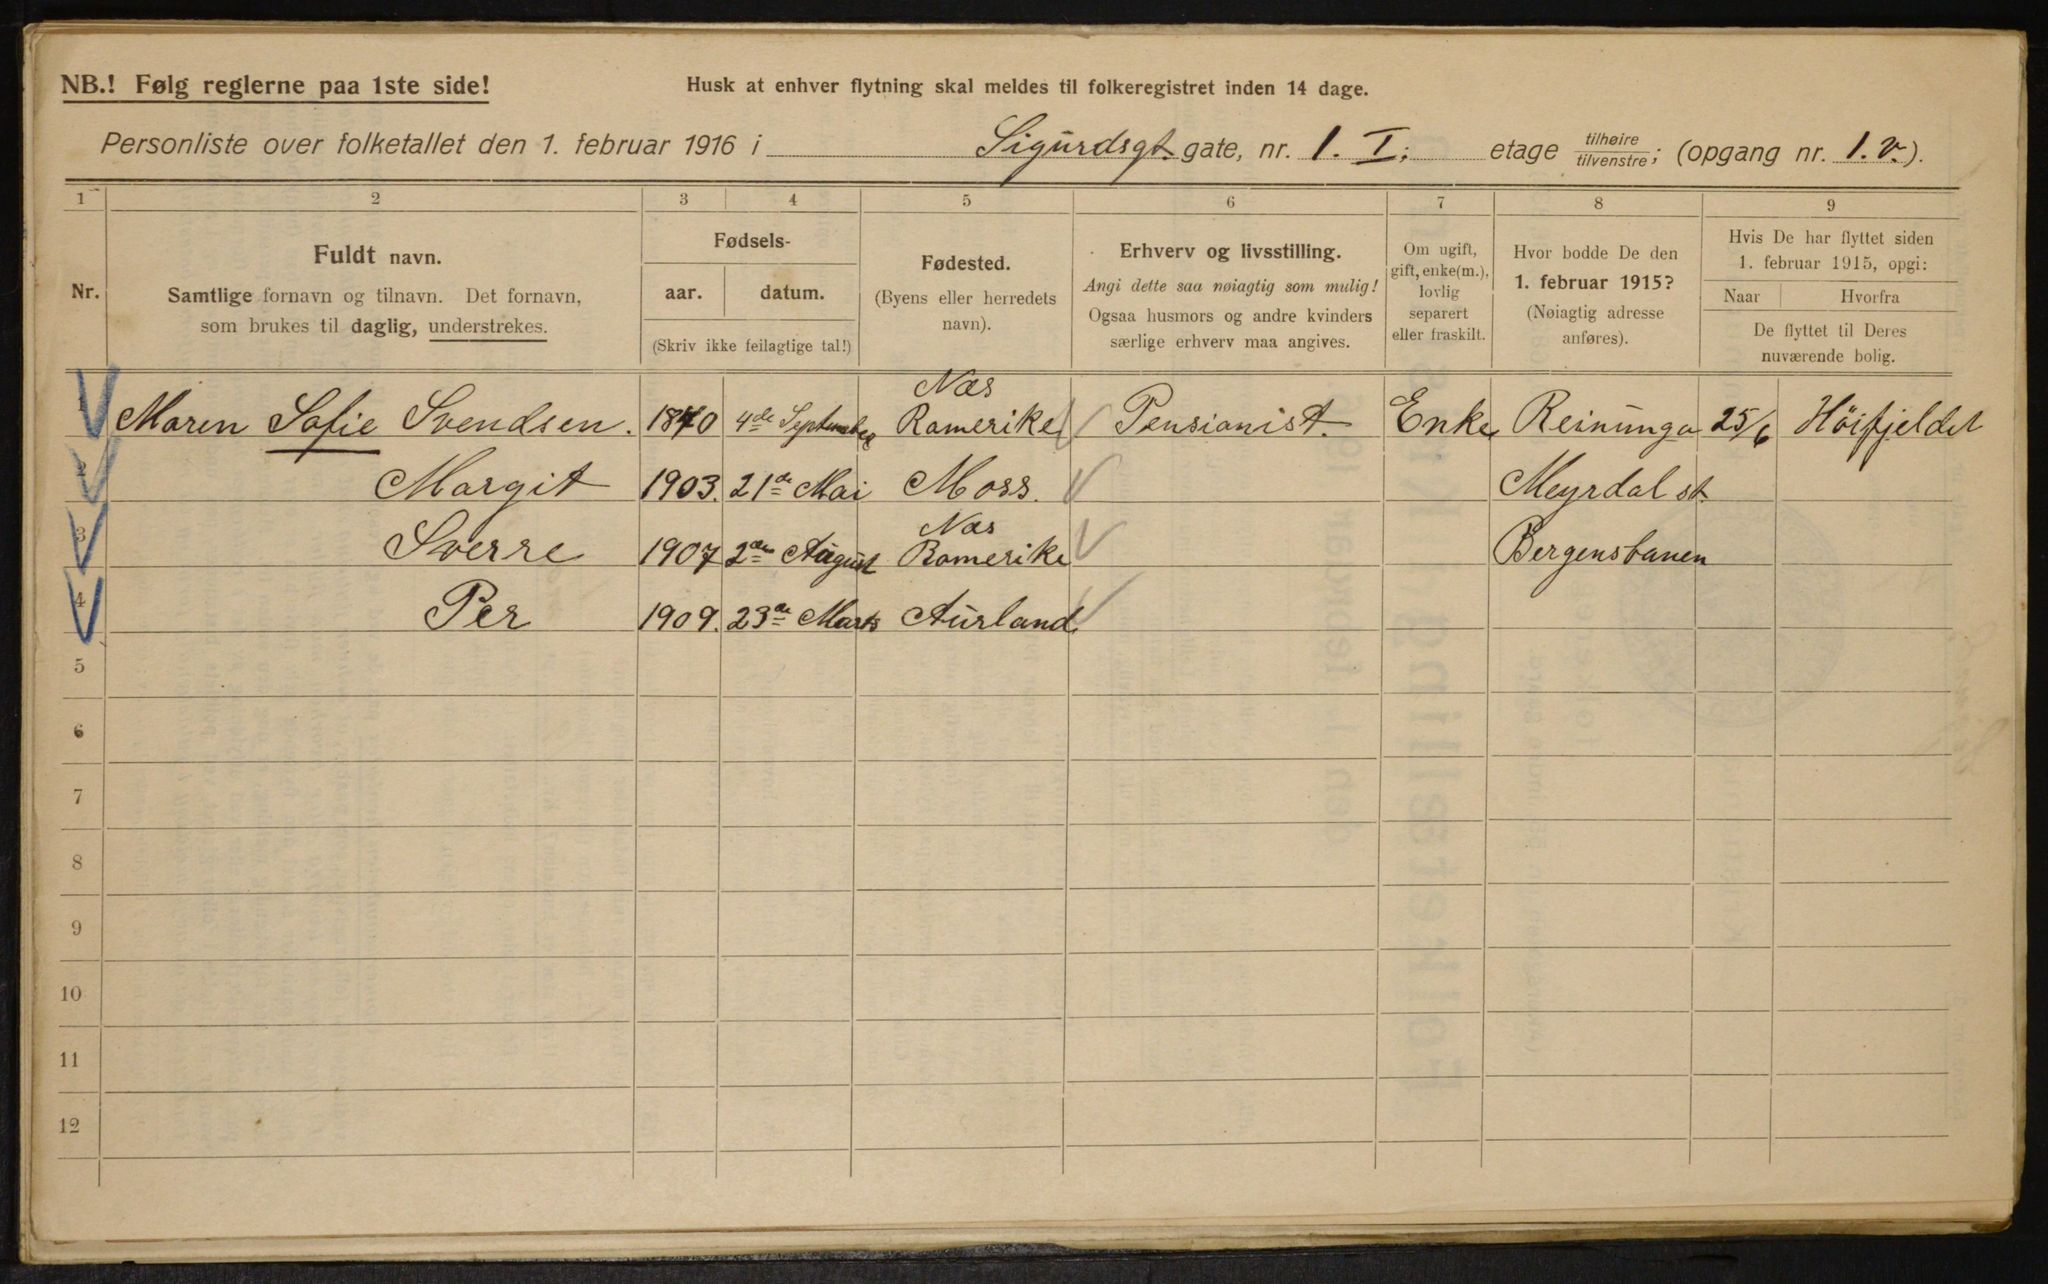 NB.! Følg reglerne paa 1ste side!
Husk at enhver flytning skal meldes til folkeregistret inden 14 dage.
Personliste over folketallet den 1. februar 1916 i Sigurdsgt. gate, nr. 1. I; etage tilhøire tilvenstre; (opgang nr. 1.v.).
1 2 3 4 5 6 7 8 9
Nr.
Fuldt navn.
Samtlige fornavn og tilnavn. Det fornavn,
som brukes til daglig, understrekes.
Fødsels-
aar. datum.
(Skriv ikke feilagtige tal!)
Fødested.
(Byens eller herredets
navn).
Erhverv og livsstilling.
Angi dette saa nøiagtig som mulig!
Ogsaa husmors og andre kvinders
særlige erhverv maa angives.
Om ugift,
gift, enke(m.),
lovlig
separert
eller fraskilt.
Hvor bodde De den
1. februar 1915?
(Nøiagtig adresse
anføres).
Hvis De har flyttet siden
1. februar 1915, opgi:
Naar Hvorfra
De flyttet til Deres
nuværende bolig.
1 Maren Sofie Svendsen. 1840 4de September Næs Romerike Pensionist. Enke Reinunga 25/6 Höifjeldet
2 Margit 1903. 21de Mai Moss. Meyrdal st.
3 Sverre 1907 2den August Næs Romerike Bergensbanen
4 Per 1909. 23de Marts Aurland
5
6
7
8
9
10
11
12